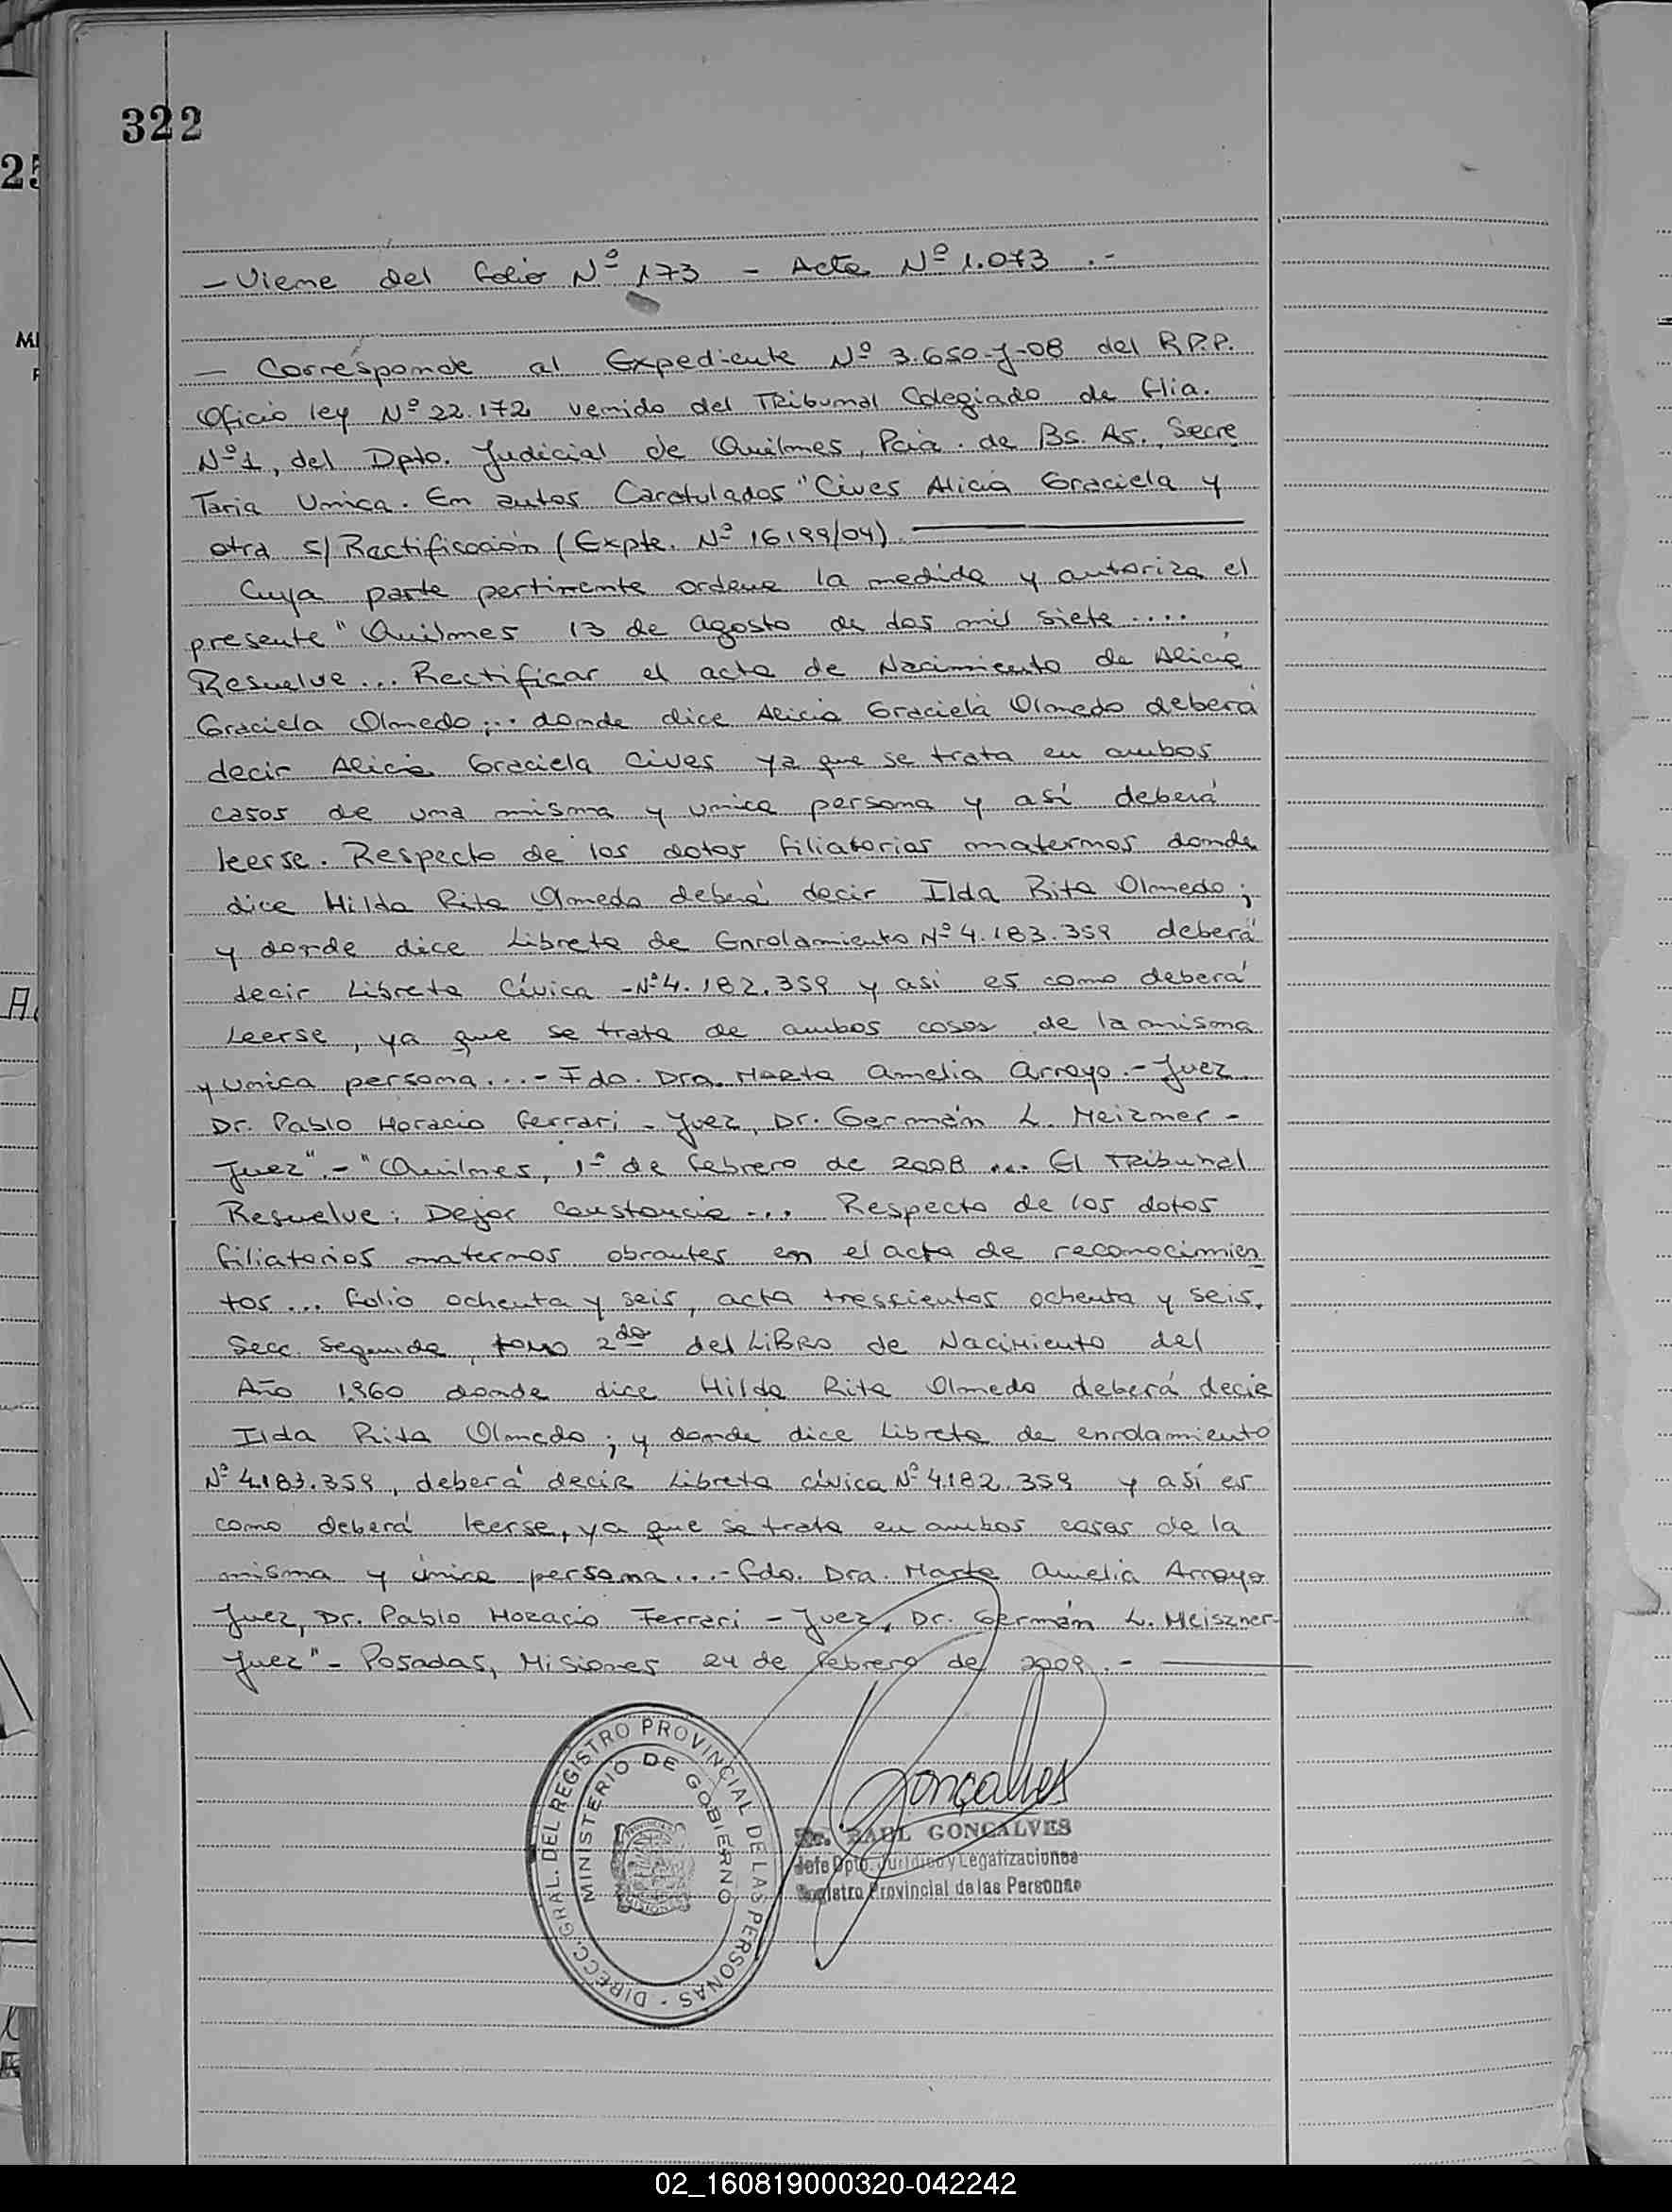 322
- Viene del folio Nº 173 - Acta Nº 1.073 .-
- Corresponde al Expediente Nº 3.650-J-08 del R.P.P.
Oficio ley Nº 22.172 venido del Tribunal Colegiado de flia.
Nº 1, del Dpto. Judicial de Quilmes, Pcia. de Bs. As., Secre
Taria Unica. En autos Caratulados "Cives Alicia Graciela y
otra s/ Rectificación (Expte. Nº 16199/04).
Cuya parte pertinente ordena la medida y autoriza el
presente "Quilmes 13 de agosto de dos mil siete ....
Resuelve... Rectificar el acta de Nacimiento de Alicia
Graciela Olmedo;... donde dice Alicia Graciela Olmedo deberá
decir Alicia Graciela Cives ya que se trata en ambos
casos de una misma y unica persona y así deberá
leerse. Respecto de los datos filiatorios maternos donde
dice Hilda Rita Olmedo deberá decir Ilda Rita Olmedo;
y donde dice Libreta de Enrolamiento Nº 4.183.359 deberá
decir Libreta Cívica -Nº 4.182.359 y asi es como deberá
Leerse, ya que se trata de ambos casos de la misma
y unica persona...- Fdo. Dra. Marta Amelia Arroyo.- Juez
Dr. Pablo Horacio Ferrari - Juez, Dr. Germán L. Meizner -
Juez".- "Quilmes, 1º de febrero de 2008 ... El Tribunal
Resuelve: Dejar constancia... Respecto de los datos
filiatorios maternos obrantes en el acta de reconocimien
tos... folio ochenta y seis, acta trescientos ochenta y seis,
Secc. Segunda, tomo 2do del Libro de Nacimiento del
Año 1960 donde dice Hilda Rita Olmedo deberá decir
Ilda Rita Olmedo; y donde dice Libreta de enrolamiento
Nº 4.183.359, deberá decir Libreta cívica Nº 4.182.359 y así es
como deberá leerse, ya que se trata en ambos casos de la
misma y única persona...- fdo. Dra. Marta Amelia Arroyo
Juez, Dr. Pablo Horacio Ferrari - Juez, Dr. Germán L. Meiszner-
Juez" - Posadas, Misiones 24 de febrero de 2009.-
DIRECC. GRAL. DEL REGISTRO PROVINCIAL DE LAS PERSONAS -
MINISTERIO DE GOBIERNO
Gonçalves
Dr. RAUL GONCALVES
Jefe Dpto. Jurídico y Legalizaciones
Registro Provincial de las Personas
02_160819000320-042242